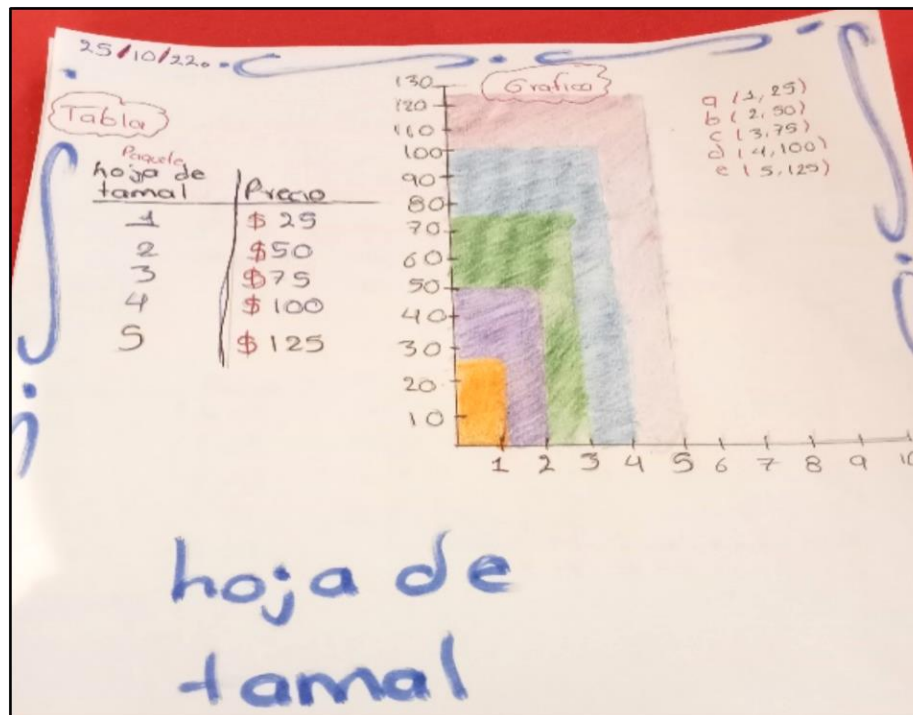 25/10/22.
Tabla
Paquete
hoja de
tamal
Precio
1 $ 25
2 $50
3 $75
4 $100
5 $ 125
Grafico
130
120
110
100
90
80
70
60
50
40
30
20
10
1 2 3 4 5 6 7 8 9 10
a (1, 25)
b (2, 50)
c (3, 75)
d (4, 100)
e (5, 125)
hoja de
tamal